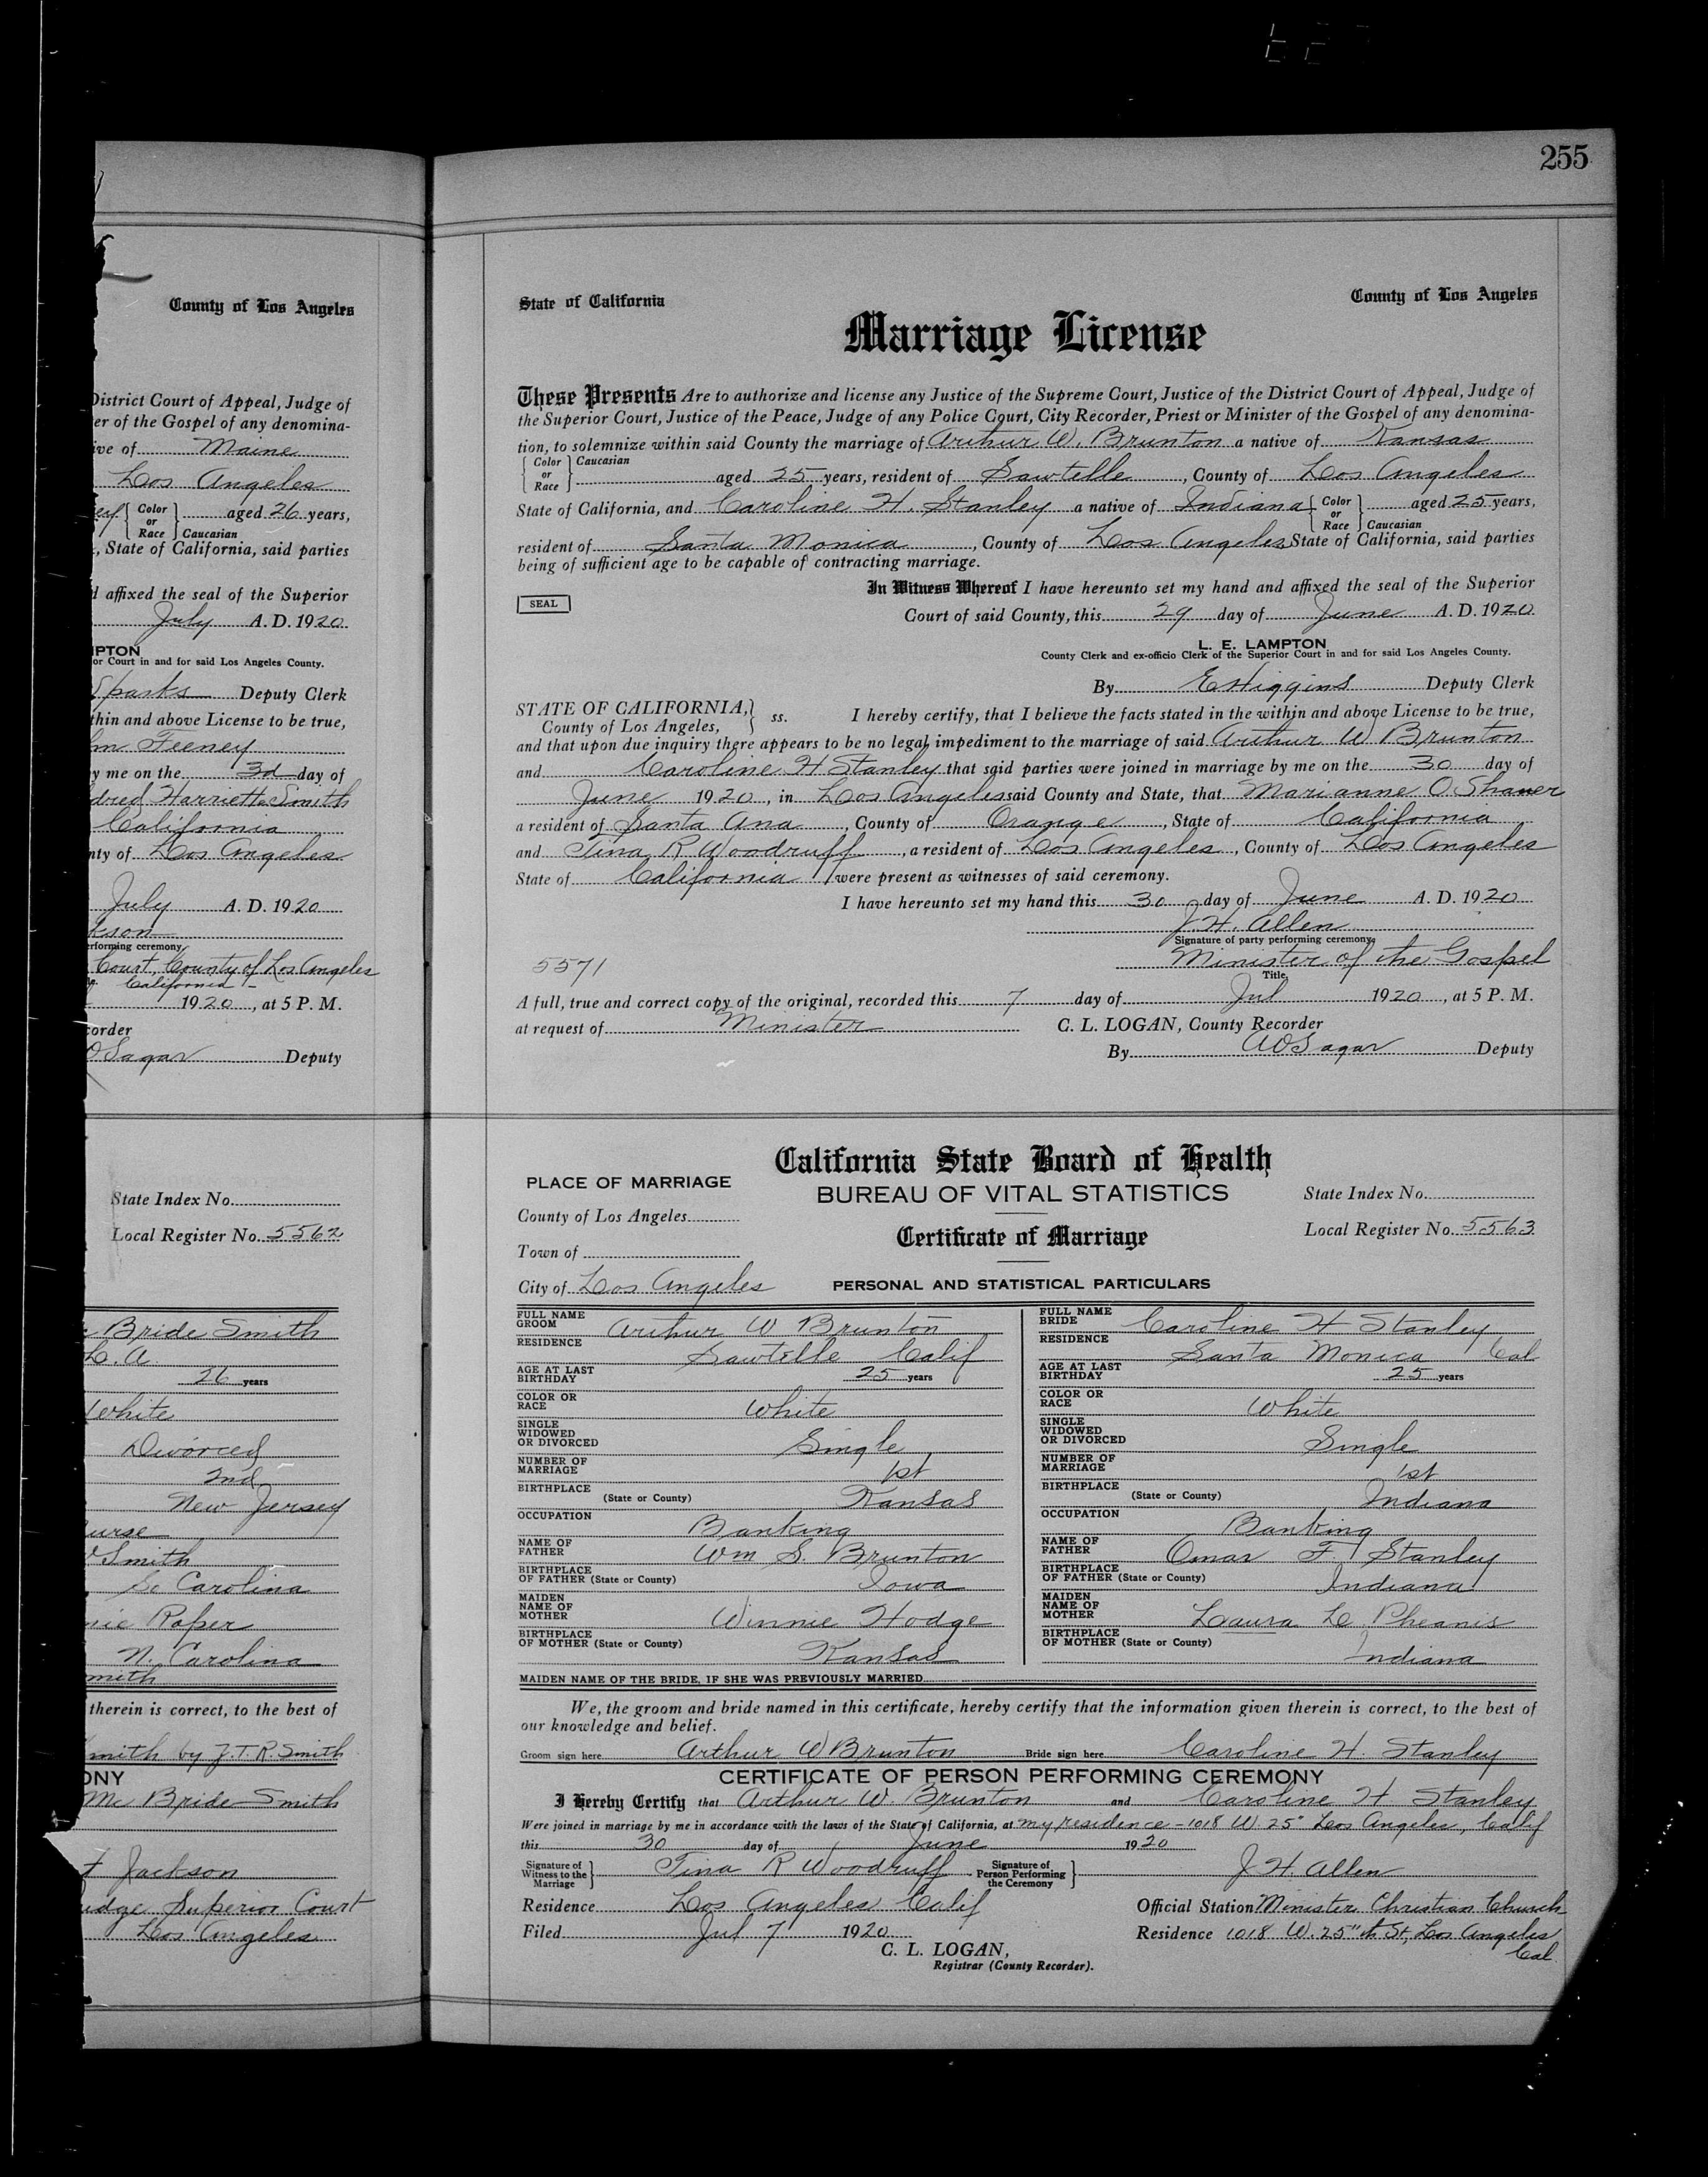 255
County of Los Angeles
District Court of Appeal, Judge of
er of the Gospel of any denomina-
ive of Maine
Los Angeles
ey { Color or Race } Caucasian aged 26 years,
, State of California, said parties
d affixed the seal of the Superior
July A. D. 1920
MPTON
or Court in and for said Los Angeles County.
Sparks Deputy Clerk
thin and above License to be true,
Feeney
y me on the 3d day of
dred Harriette Smith
California
nty of Los Angeles
July A. D. 1920
kson
erforming ceremony
Court, County of Los Angeles
California
1920, at 5 P. M.
corder
O Sagar Deputy
State Index No.
Local Register No. 5562
Bride Smith
L. A.
26 years
White
Divorced
2nd
New Jersey
urse
Smith
So Carolina
nie Roper
N. Carolina
mith
therein is correct, to the best of
mith by J. T. R. Smith
ONY
Mc Bride Smith
t Jackson
udge Superior Court
Los Angeles
State of California County of Los Angeles
Marriage License
These Presents Are to authorize and license any Justice of the Supreme Court, Justice of the District Court of Appeal, Judge of
the Superior Court, Justice of the Peace, Judge of any Police Court, City Recorder, Priest or Minister of the Gospel of any denomina-
tion, to solemnize within said County the marriage of Arthur W. Brunton a native of Kansas
{ Color or Race } Caucasian aged 25 years, resident of Sawtelle, County of Los Angeles
State of California, and Caroline H. Stanley a native of Indiana { Color or Race } Caucasian aged 25 years,
resident of Santa Monica, County of Los Angeles State of California, said parties
being of sufficient age to be capable of contracting marriage.
In Witness Whereof I have hereunto set my hand and affixed the seal of the Superior
SEAL
Court of said County, this 29 day of June A. D. 1920
L. E. LAMPTON
County Clerk and ex-officio Clerk of the Superior Court in and for said Los Angeles County.
By E Higgins Deputy Clerk
STATE OF CALIFORNIA, } ss. I hereby certify, that I believe the facts stated in the within and above License to be true,
County of Los Angeles,
and that upon due inquiry there appears to be no legal impediment to the marriage of said Arthur W Brunton
and Caroline H Stanley that said parties were joined in marriage by me on the 30 day of
June 1920, in Los Angeles said County and State, that Marianne O. Shaner
a resident of Santa Ana, County of Orange, State of California
and Tina R Woodruff, a resident of Los Angeles, County of Los Angeles
State of California were present as witnesses of said ceremony.
I have hereunto set my hand this 30 day of June A. D. 1920
J. H. Allen
Signature of party performing ceremony
5571 Minister of the Gospel
Title
A full, true and correct copy of the original, recorded this 7 day of Jul 1920, at 5 P. M.
at request of Minister C. L. LOGAN, County Recorder
By A O Sagar Deputy
California State Board of Health
PLACE OF MARRIAGE BUREAU OF VITAL STATISTICS State Index No.
County of Los Angeles
Certificate of Marriage Local Register No. 5563
Town of
City of Los Angeles PERSONAL AND STATISTICAL PARTICULARS
FULL NAME GROOM Arthur W Brunton FULL NAME BRIDE Caroline H Stanley
RESIDENCE Sawtelle Calif RESIDENCE Santa Monica Cal
AGE AT LAST BIRTHDAY 25 years AGE AT LAST BIRTHDAY 25 years
COLOR OR RACE White COLOR OR RACE White
SINGLE WIDOWED OR DIVORCED Single SINGLE WIDOWED OR DIVORCED Single
NUMBER OF MARRIAGE 1st NUMBER OF MARRIAGE 1st
BIRTHPLACE (State or County) Kansas BIRTHPLACE (State or County) Indiana
OCCUPATION Banking OCCUPATION Banking
NAME OF FATHER Wm S. Brunton NAME OF FATHER Omar F Stanley
BIRTHPLACE OF FATHER (State or County) Iowa BIRTHPLACE OF FATHER (State or County) Indiana
MAIDEN NAME OF MOTHER Winnie Hodge MAIDEN NAME OF MOTHER Laura L. Pheanis
BIRTHPLACE OF MOTHER (State or County) Kansas BIRTHPLACE OF MOTHER (State or County) Indiana
MAIDEN NAME OF THE BRIDE, IF SHE WAS PREVIOUSLY MARRIED
We, the groom and bride named in this certificate, hereby certify that the information given therein is correct, to the best of
our knowledge and belief.
Groom sign here Arthur W Brunton Bride sign here Caroline H. Stanley
CERTIFICATE OF PERSON PERFORMING CEREMONY
I Hereby Certify that Arthur W. Brunton and Caroline H Stanley
Were joined in marriage by me in accordance with the laws of the State of California, at my residence - 1018 W 25" Los Angeles, Calif
this 30 day of June 1920
Signature of Witness to the Marriage } Tina R Woodruff Signature of Person Performing the Ceremony } J H. Allen
Residence Los Angeles Calif Official Station Minister Christian Church
Filed Jul 7 1920 Residence 1018 W. 25"th St, Los Angeles
Cal
C. L. LOGAN,
Registrar (County Recorder).